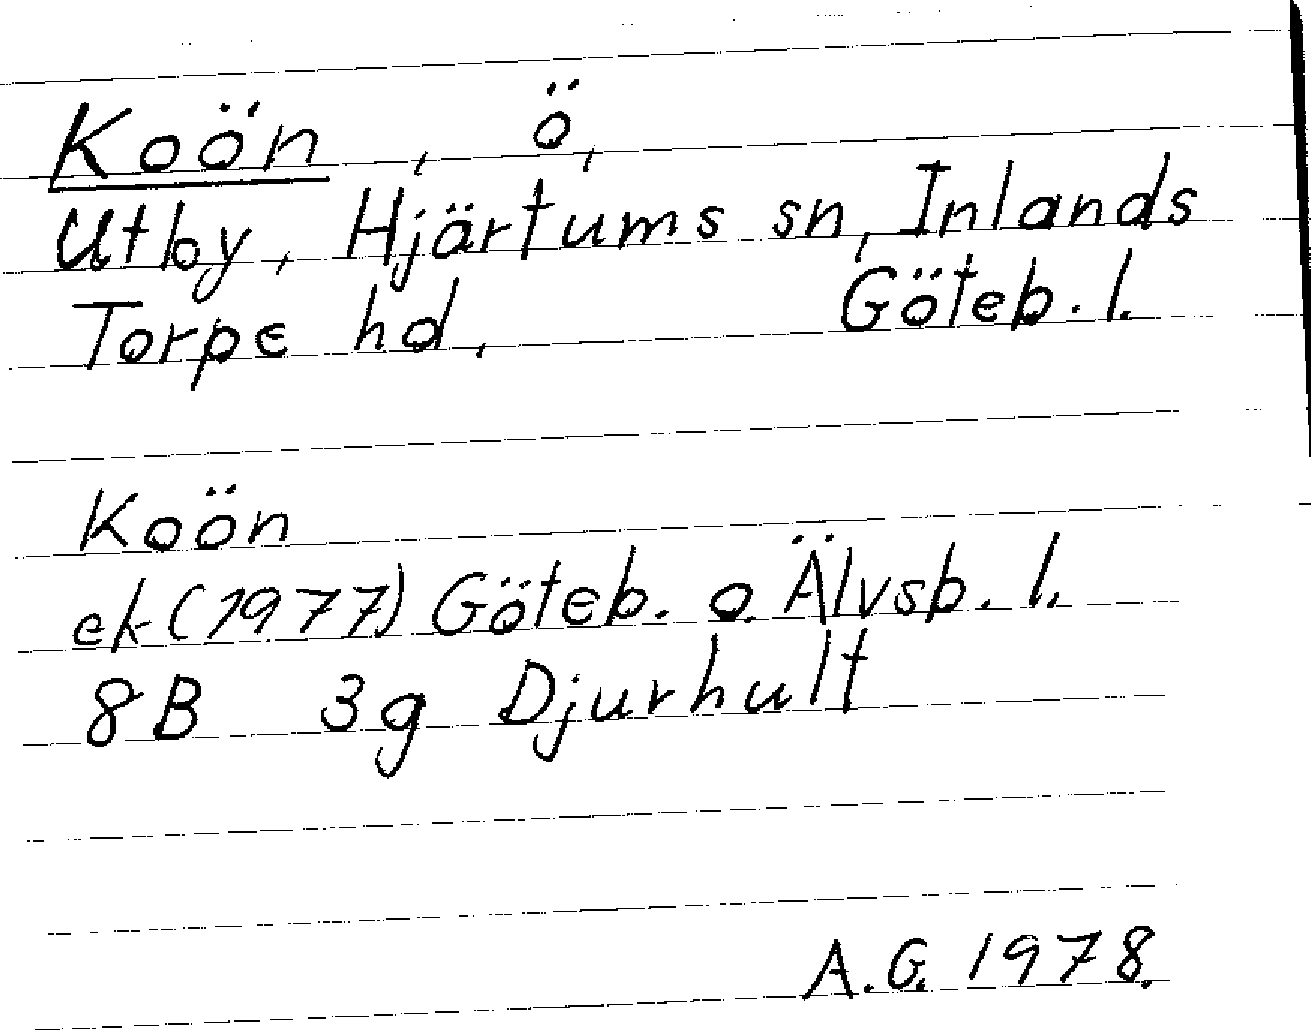 Koön, ö,
Utby, Hjärtums sn, Inlands
Torpe hd, Göteb. l.
Koön
ek (1977) Göteb. o. Älvsb. l.
8B 3g Djurhult
A.G. 1978.